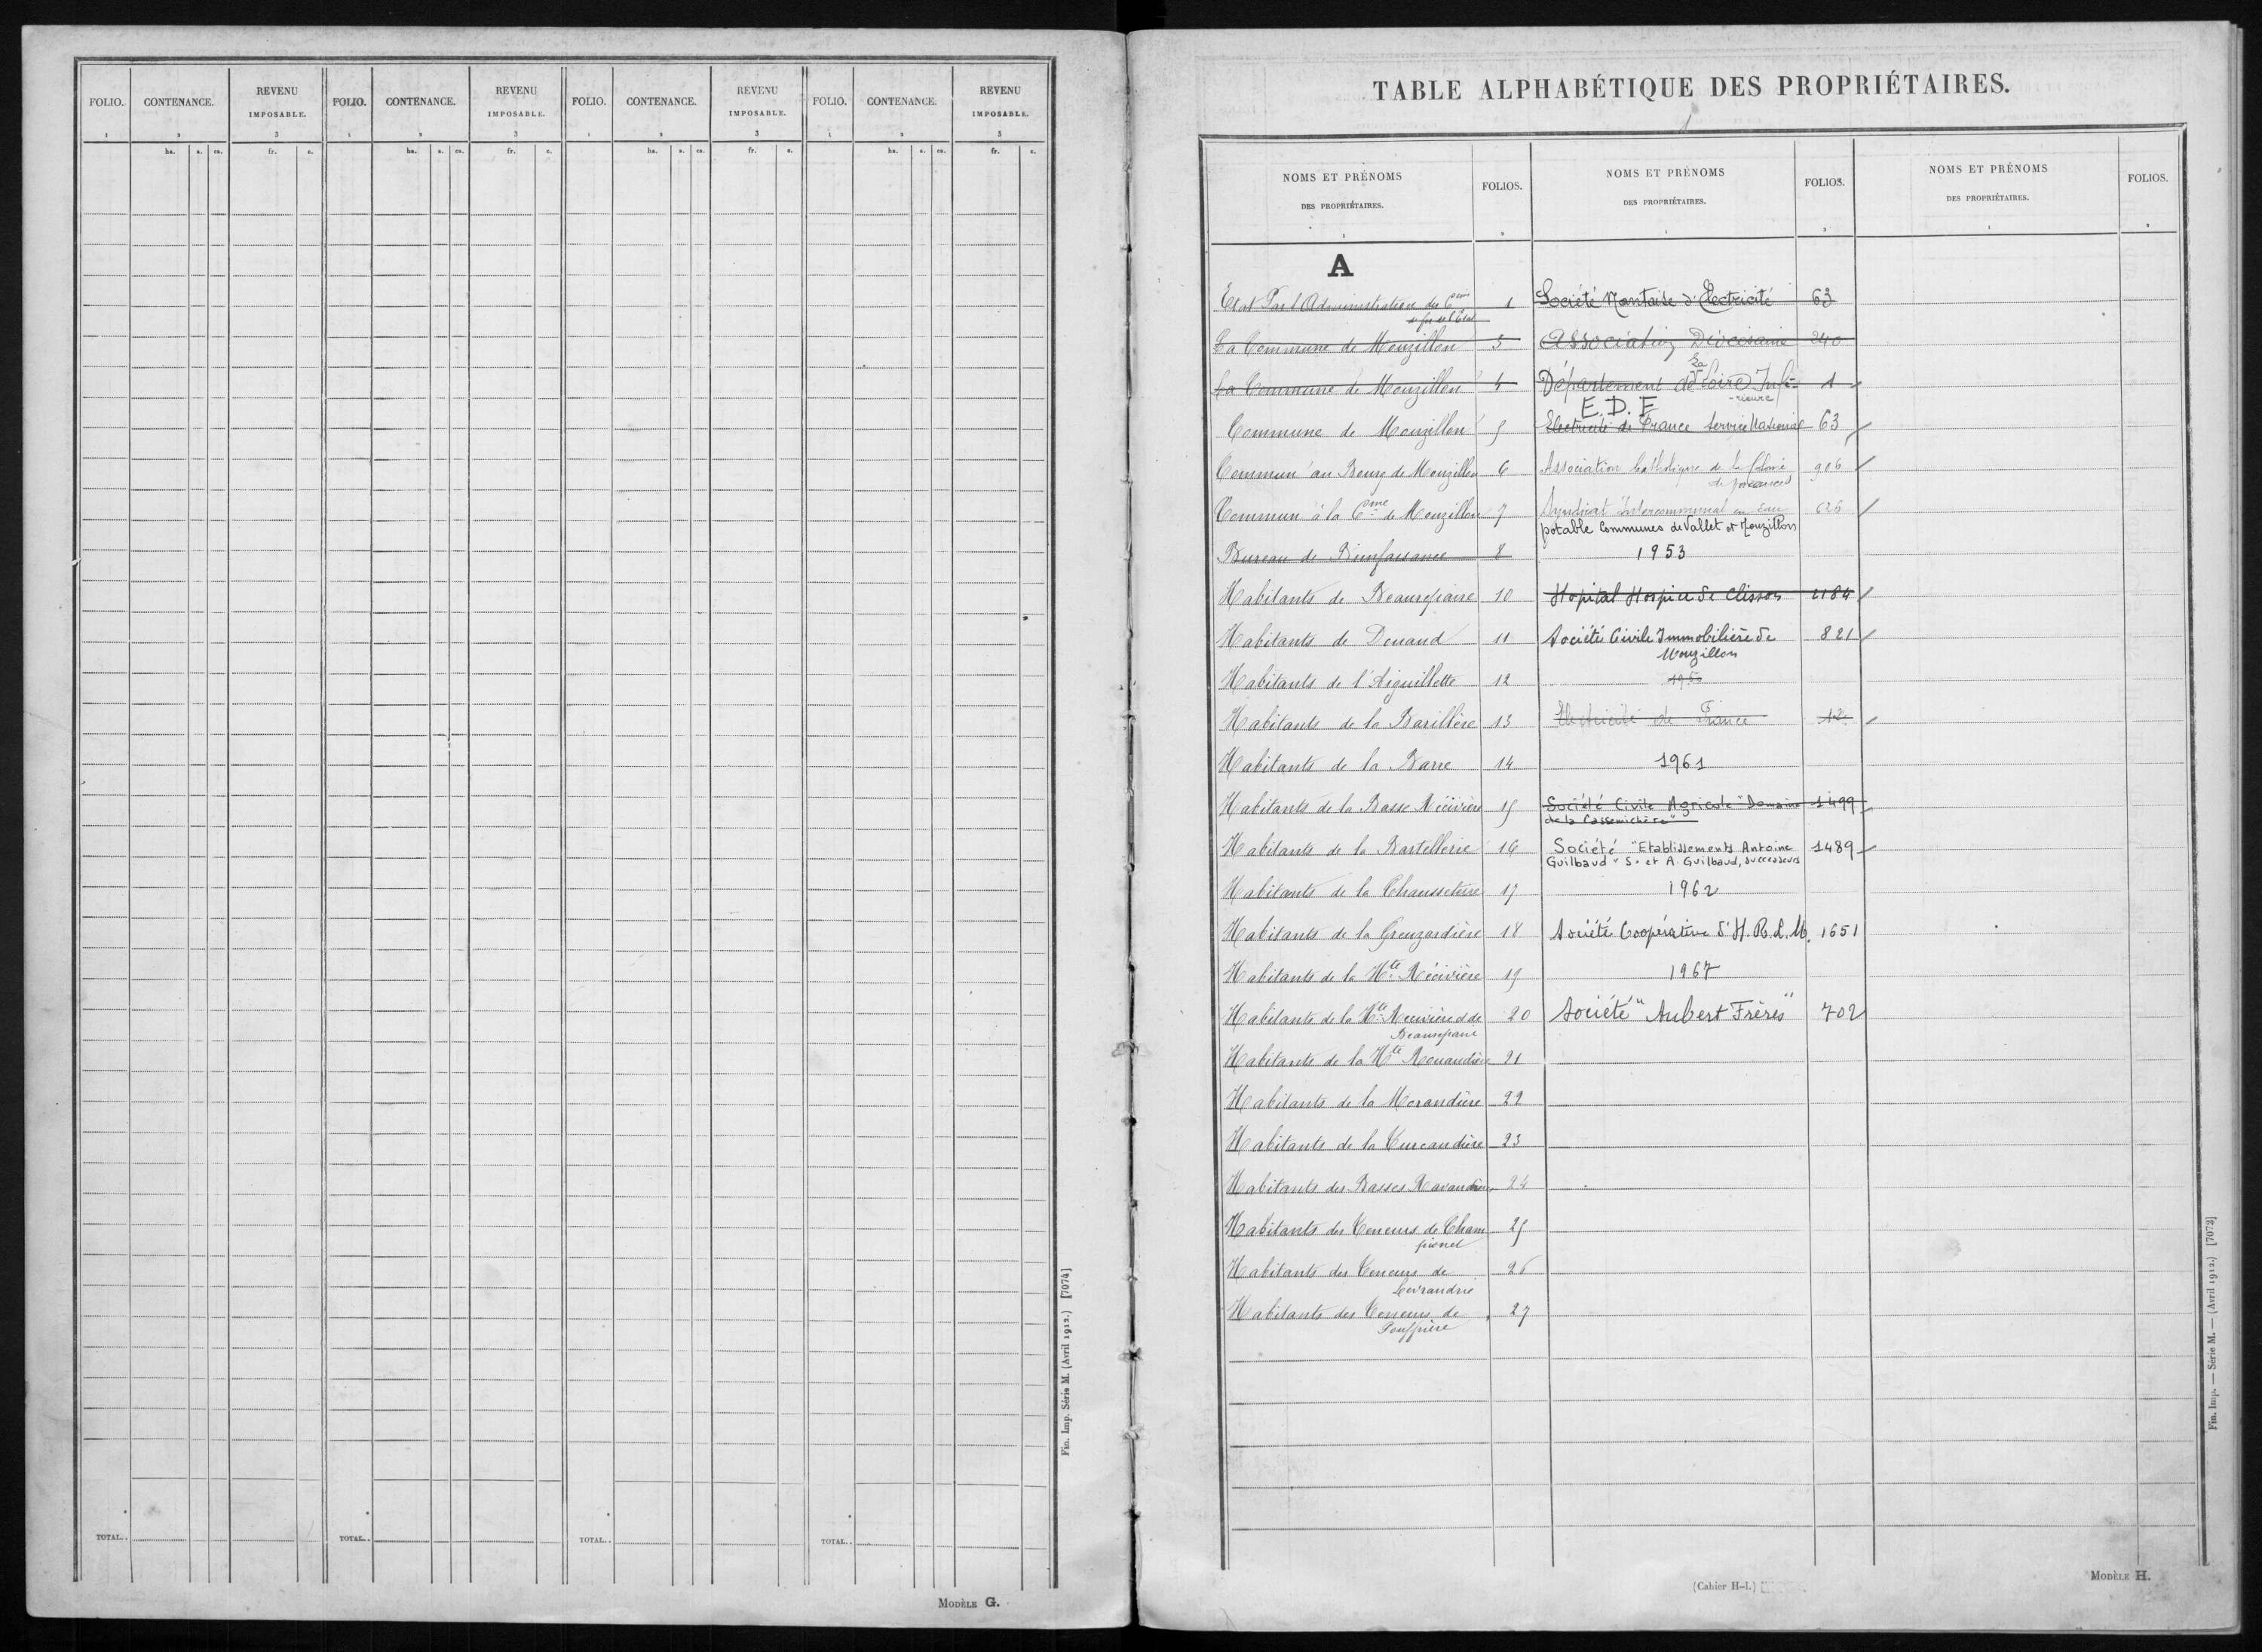 FOLIO. CONTENANCE. REVENU IMPOSABLE. FOLIO. CONTENANCE. REVENU IMPOSABLE. FOLIO. CONTENANCE. REVENU IMPOSABLE. FOLIO. CONTENANCE. REVENU IMPOSABLE.
1 2 3 1 2 3 1 2 3 1 2 3
ha. a. ca. fr. c. ha. a. ca. fr. c. ha. a. ca. fr. c. ha. a. ca. fr. c.
TOTAL.. TOTAL.. TOTAL.. TOTAL..
Fin. Imp. Série M. (Avril 1912.) [7074]
MODÈLE G.
TABLE ALPHABÉTIQUE DES PROPRIÉTAIRES.
NOMS ET PRÉNOMS
DES PROPRIÉTAIRES.
FOLIOS.
NOMS ET PRÉNOMS
DES PROPRIÉTAIRES.
FOLIOS.
NOMS ET PRÉNOMS
DES PROPRIÉTAIRES.
FOLIOS.
1 2 1 2 1 2
A
Etat Par l'Administration des Cins 1
de fer de l'Etat
La Commune de Mouzillon 3
La Commune de Mouzillon 4
Commune de Mouzillon 5
Commun au Bourg de Mouzillon 6
Commun à la Cme de Mouzillon 7
Bureau de Bienfaisance 8
Habitants de Beaurepaire 10
Habitants de Douaud 11
Habitants de l'Aiguillette 12
Habitants de la Barillère 13
Habitants de la Barre 14
Habitants de la Basse Récivière 15
Habitants de la Bartellerie 16
Habitants de la 17
Habitants de la 18
Habitants de la Hte Récivière 19
Habitants de la Hte Récivière et de 20
Beaurepaire
Habitants de la Hte 21
Habitants de la Morandière 22
Habitants de la 23
Habitants des Basses 24
Habitants des Teneurs de Cham 25
pionet
Habitants des Teneurs de 26
Habitants des Teneurs de 27
Société Nantaise d'Electricité 63
Association Diocésaine 240
Département de La Loire Infé- 1
-rieure
E.D.F
Electricité de France Service National 63
Association Catholique de la 906
Syndicat Intercommunal en Eau 626
potable Communes de Vallet et Mouzillon
1953
Hopital Hospice de Clisson 1184
Société Civile Immobilière de 821
Mouzillon
1960
Electricité de France 12
1961
Société Civile Agricole "Domaine 1499
de la Cassemichère"
Société "Etablissements Antoine 1489
Guilbaud" S. et A. Guilbaud, successeurs
1962
Société Coopérative d'H.R.L.M. 1651
1967
Société "Aubert Frères" 702
(Cahier H-I.)
MODÈLE H.
Fin. Imp. — Série M. — (Avril 1912.) [7072]